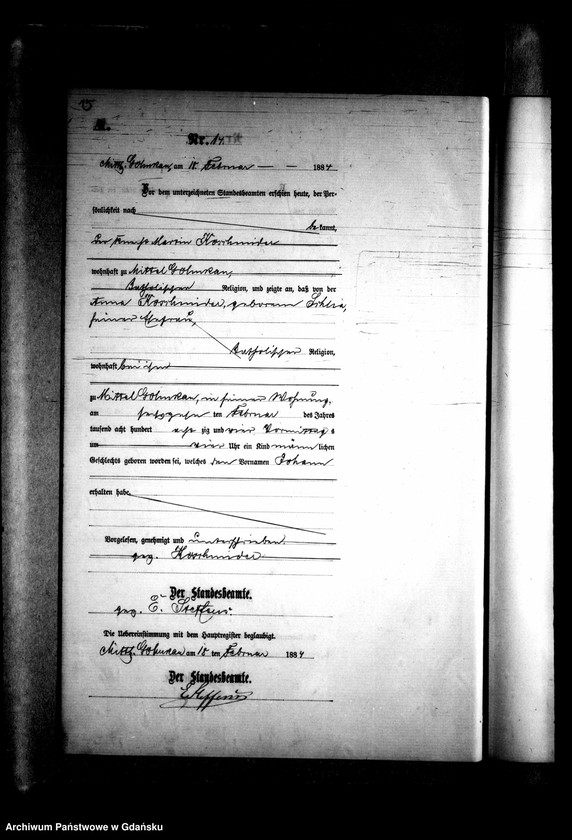 15
A.
Nr. 14.
Mittl. Golmkau, am 18 Februar 1884
Vor dem unterzeichneten Standesbeamten erschien heute, der Per-
sönlichkeit nach
be kannt,
der Knecht Martin
wohnhaft zu Mittel Golmkau,
katholischer Religion, und zeigte an, daß von der
Anna geborenen
seiner Ehefrau,
katholischer Religion,
wohnhaft bei ihm
zu Mittel Golmkau, in seiner Wohnung,
am ten Februar des Jahres
tausend acht hundert acht zig und vier Vormittag s
um vier Uhr ein Kind männ lichen
Geschlechts geboren worden sei, welches den Vornamen Johann
erhalten habe.
Vorgelesen, genehmigt und unterschrieben.
gez.
Der Standesbeamte.
gez. E. Steffens.
Die Uebereinstimmung mit dem Hauptregister beglaubigt.
Mittl. Golmkau am 18 ten Februar 1884
Der Standesbeamte.
E. Steffens
Archiwum Państwowe w Gdańsku